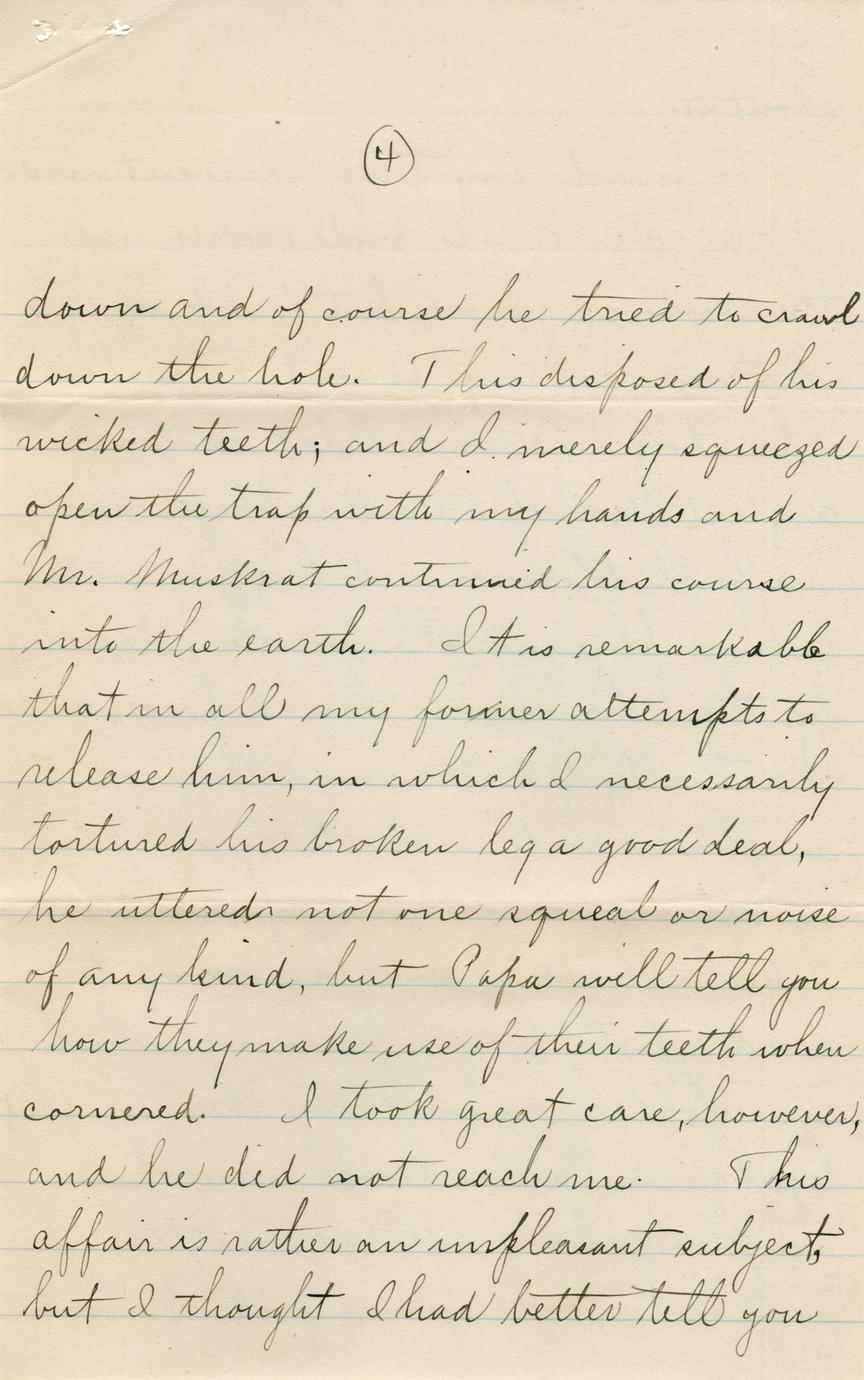 4
down and of course he tried to crawl
down the hole. This disposed of his
wicked teeth; and I merely squeezed
open the trap with my hands and
Mr. Muskrat continued his course
into the earth. It is remarkable
that in all my former attempts to
release him, in which I necessarily
tortured his broken leg a good deal,
he uttered not one squeal or noise
of any kind, but Papa will tell you
how they make use of their teeth when
cornered. I took great care, however,
and he did not reach me. This
affair is rather an unpleasant subject,
but I thought I had better tell you